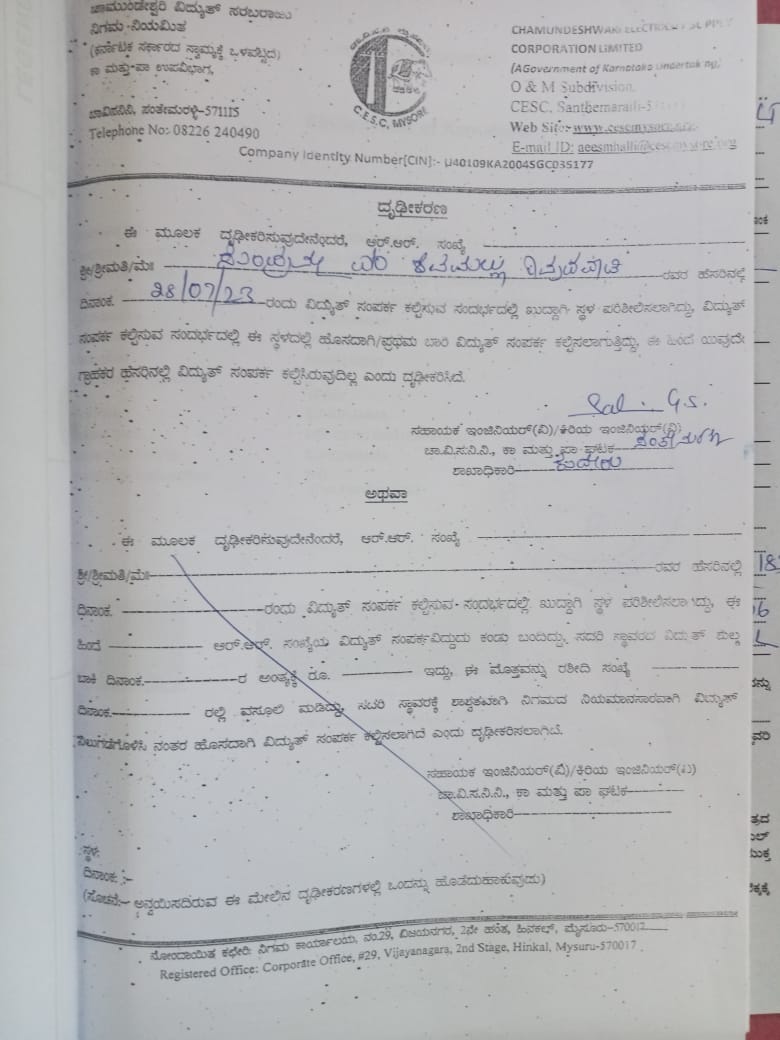 ಚಾಮುಂಡೇಶ್ವರಿ ವಿದ್ಯುತ್ ಸರಬರಾಜು
ನಿಗಮ ನಿಯಮಿತ
(ಕರ್ನಾಟಕ ಸರ್ಕಾರದ ಸ್ವಾಮ್ಯಕ್ಕೆ ಒಳಪಟ್ಟಿದೆ)
ಕಾ ಮತ್ತು ಪಾ ಉಪವಿಭಾಗ,
ಚಾವಿಸನಿನಿ, ಸಂತೇಮರಳ್ಳಿ-571115
Telephone No: 08226 240490
C.E.S.C, MYSORE
CHAMUNDESHWARI ELECTRICITY SUPPLY
CORPORATION LIMITED
(AGovernment of Karnataka Undertaking)
O & M Subdivision,
CESC, Santhemaralli-5
Web Site:- www.cescmysore.org
E-mail ID: aeesmhalli@cescmysore.org
Company Identity Number[CIN]:- U40109KA2004SGC035177
ದೃಢೀಕರಣ
ಈ ಮೂಲಕ ದೃಢೀಕರಿಸುವುದೇನೆಂದರೆ, ಆರ್.ಆರ್. ಸಂಖ್ಯೆ
ಶ್ರೀ/ಶ್ರೀಮತಿ/ಮೆಃ ರವರ ಹೆಸರಿನಲ್ಲಿ
ದಿನಾಂಕ. 28/07/23 ರಂದು ವಿದ್ಯುತ್ ಸಂಪರ್ಕ ಕಲ್ಪಿಸುವ ಸಂದರ್ಭದಲ್ಲಿ ಖುದ್ದಾಗಿ ಸ್ಥಳ ಪರಿಶೀಲಿಸಲಾಗಿದ್ದು, ವಿದ್ಯುತ್
ಸಂಪರ್ಕ ಕಲ್ಪಿಸುವ ಸಂದರ್ಭದಲ್ಲಿ ಈ ಸ್ಥಳದಲ್ಲಿ ಹೊಸದಾಗಿ/ಪ್ರಥಮ ಬಾರಿ ವಿದ್ಯುತ್ ಸಂಪರ್ಕ ಕಲ್ಪಿಸಲಾಗುತ್ತಿದ್ದು, ಈ ಹಿಂದೆ ಯಾವುದೇ
ಗ್ರಾಹಕರ ಹೆಸರಿನಲ್ಲಿ ವಿದ್ಯುತ್ ಸಂಪರ್ಕ ಕಲ್ಪಿಸಿರುವುದಿಲ್ಲ ಎಂದು ದೃಢೀಕರಿಸಿದೆ.
ಸಹಾಯಕ ಇಂಜಿನಿಯರ್(ವಿ)/ಕಿರಿಯ ಇಂಜಿನಿಯರ್(ವಿ)
ಚಾ.ವಿ.ಸ.ನಿ.ನಿ., ಕಾ ಮತ್ತು ಪಾ ಘಟಕ
ಶಾಖಾಧಿಕಾರಿ ಕುದೇರು
ಅಥವಾ
ಈ ಮೂಲಕ ದೃಢೀಕರಿಸುವುದೇನೆಂದರೆ, ಆರ್.ಆರ್. ಸಂಖ್ಯೆ
ಶ್ರೀ/ಶ್ರೀಮತಿ/ಮೆಃ ರವರ ಹೆಸರಿನಲ್ಲಿ
ದಿನಾಂಕ. ರಂದು ವಿದ್ಯುತ್ ಸಂಪರ್ಕ ಕಲ್ಪಿಸುವ ಸಂದರ್ಭದಲ್ಲಿ ಖುದ್ದಾಗಿ ಸ್ಥಳ ಪರಿಶೀಲಿಸಲಾಗಿದ್ದು, ಈ
ಹಿಂದೆ ಆರ್.ಆರ್. ಸಂಖ್ಯೆಯ ವಿದ್ಯುತ್ ಸಂಪರ್ಕವಿದ್ದುದು ಕಂಡು ಬಂದಿದ್ದು, ಸದರಿ ಸ್ಥಾವರದ ವಿದ್ಯುತ್ ಶುಲ್ಕ
ಬಾಕಿ ದಿನಾಂಕ. ರ ಅಂತ್ಯಕ್ಕೆ ರೂ. ಇದ್ದು, ಈ ಮೊತ್ತವನ್ನು ರಶೀದಿ ಸಂಖ್ಯೆ
ದಿನಾಂಕ. ರಲ್ಲಿ ವಸೂಲಿ ಮಾಡಿದ್ದು, ಸದರಿ ಸ್ಥಾವರಕ್ಕೆ ಶಾಶ್ವತವಾಗಿ ನಿಗಮದ ನಿಯಮಾನುಸಾರವಾಗಿ ವಿದ್ಯುತ್
ನಿಲುಗಡೆಗೊಳಿಸಿ ನಂತರ ಹೊಸದಾಗಿ ವಿದ್ಯುತ್ ಸಂಪರ್ಕ ಕಲ್ಪಿಸಲಾಗಿದೆ ಎಂದು ದೃಢೀಕರಿಸಲಾಗಿದೆ.
ಸಹಾಯಕ ಇಂಜಿನಿಯರ್(ವಿ)/ಕಿರಿಯ ಇಂಜಿನಿಯರ್(ವಿ)
ಚಾ.ವಿ.ಸ.ನಿ.ನಿ., ಕಾ ಮತ್ತು ಪಾ ಘಟಕ
ಶಾಖಾಧಿಕಾರಿ
ಸ್ಥಳ:
ದಿನಾಂಕ :-
(ಸೂಚನೆ:- ಅನ್ವಯಿಸದಿರುವ ಈ ಮೇಲಿನ ದೃಢೀಕರಣಗಳಲ್ಲಿ ಒಂದನ್ನು ಹೊಡೆದುಹಾಕುವುದು)
ನೋಂದಾಯಿತ ಕಛೇರಿ: ನಿಗಮ ಕಾರ್ಯಾಲಯ, ನಂ.29, ವಿಜಯನಗರ, 2ನೇ ಹಂತ, ಹಿನಕಲ್, ಮೈಸೂರು-570017
Registered Office: Corporate Office, #29, Vijayanagara, 2nd Stage, Hinkal, Mysuru-570017